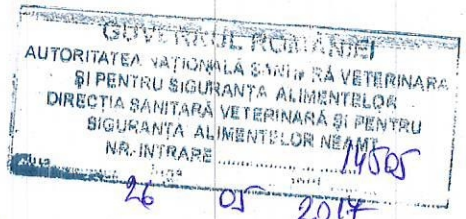 GUVERNUL ROMÂNIEI
AUTORITATEA NAȚIONALĂ SANITARĂ VETERINARĂ
ȘI PENTRU SIGURANȚA ALIMENTELOR
DIRECȚIA SANITARĂ VETERINARĂ ȘI PENTRU
SIGURANȚA ALIMENTELOR NEAMȚ
NR. INTRARE ........ 14505
26 05 2017